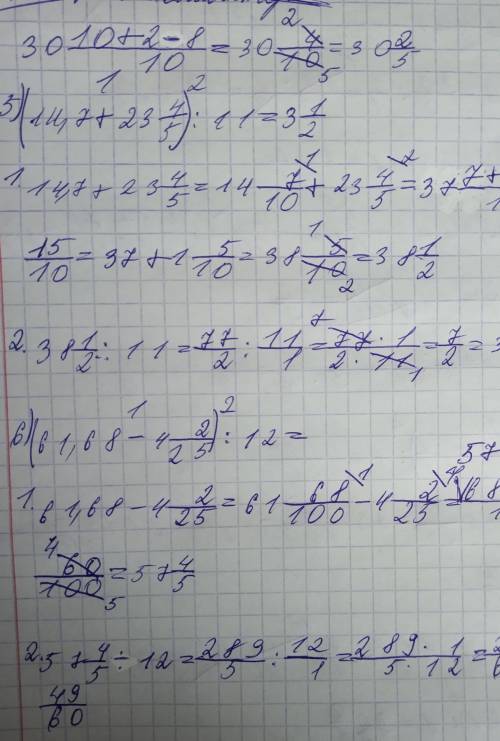 30 (10+2-8)/10 = 30 4/10 = 30 2/5
5) (14,7 + 23 4/5) : 11 = 3 1/2
1. 14,7 + 23 4/5 = 14 7/10 + 23 4/5 = 37 7+
15/10 = 37 + 1 5/10 = 38 5/10 = 38 1/2
2. 38 1/2 : 11 = 77/2 : 11/1 = (77 · 1)/(2 · 11) = 7/2 = 3
6) (61,68 - 4 2/25) : 12 =
1. 61,68 - 4 2/25 = 61 68/100 - 4 2/25 = 57 68
60/100 = 57 4/5
2. 57 4/5 ÷ 12 = 289/5 : 12/1 = (289 · 1)/(5 · 12) =
49/60